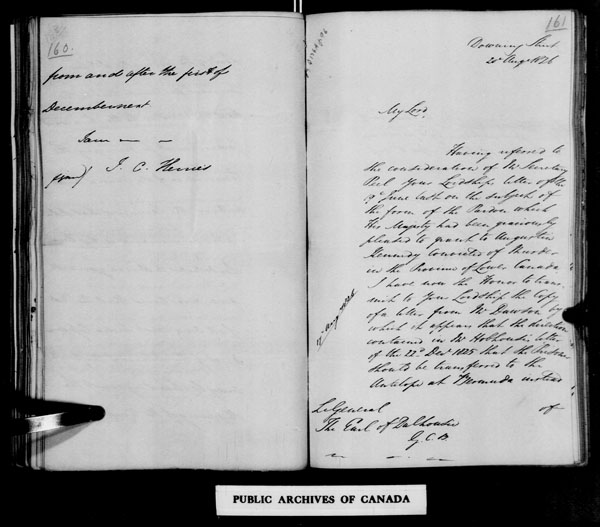 160.
from and after the first of
December next
I am — —
(signed) J. C. Herries
161
Downing Street
20 Augt 1826
My Lord,
Having referred to
the consideration of Mr Secretary
Peel Your Lordships letter of the
9th June last on the subject of
the form of the Pardon which
His Majesty had been graciously
pleased to grant to Augustin
Kennedy convicted of Murder
in the Province of Lower Canada
I have now the Honor to trans-
mit to Your Lordship the Copy
of a letter from Mr Dawson by
which it appears that the direction
contained in Mr Hobhouse's letter
of the 22d Decr 1825 that the Prisoner
should be transferred to the
Antelope at Bermuda instead
of
Lt General
The Earl of Dalhousie
G. C. B.
Augt 1826
PUBLIC ARCHIVES OF CANADA